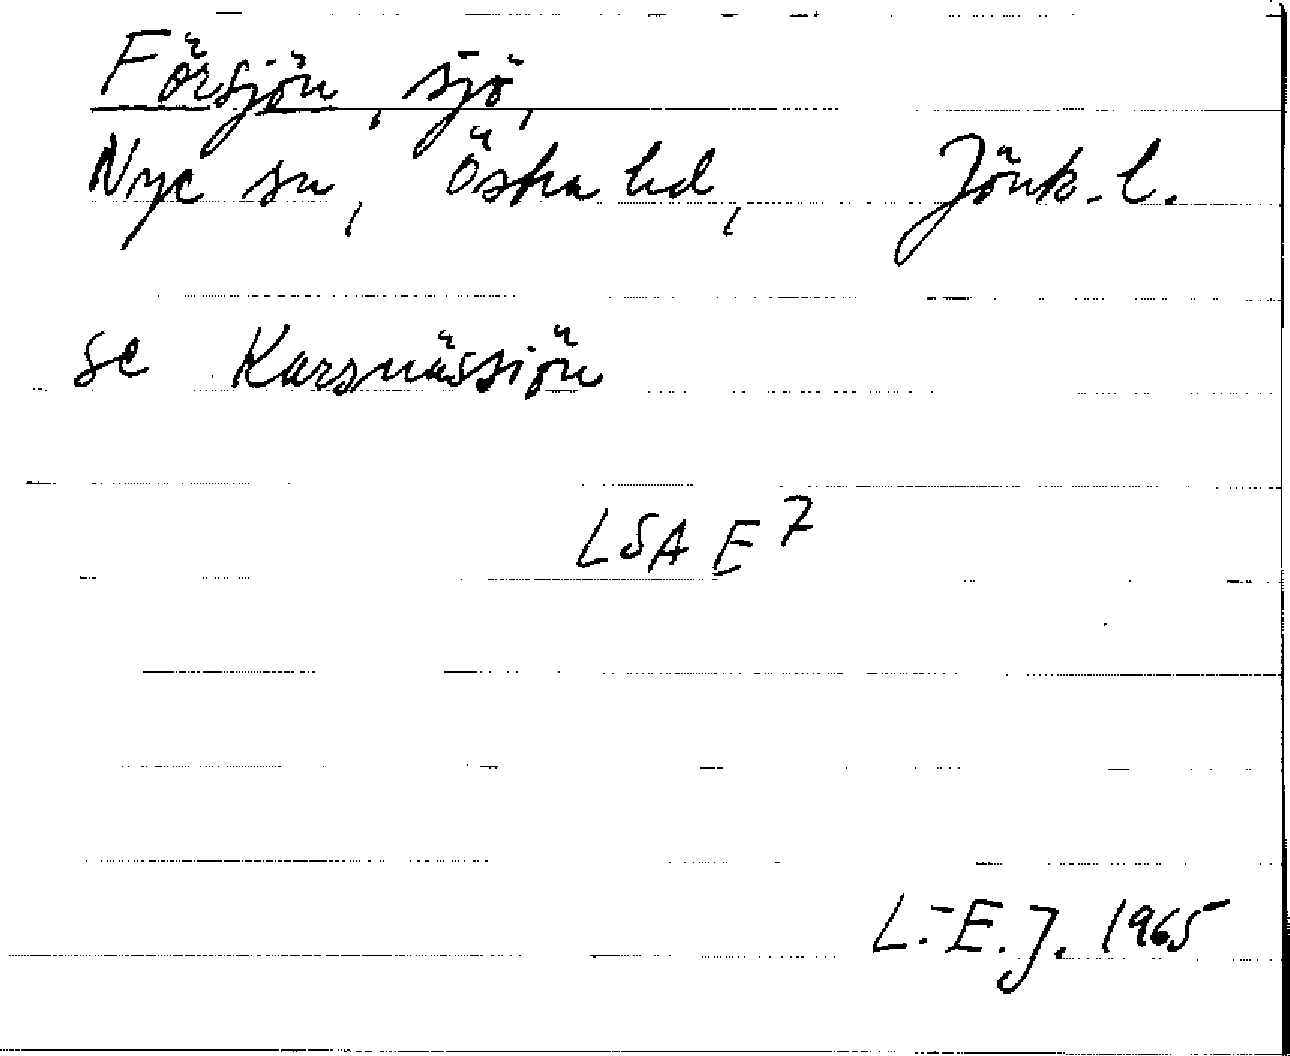 Försjön, sjö,
Nye sn, Östra hd, Jönk. l.
se Karsnässjön
LSA E7
L.-E. J. 1965